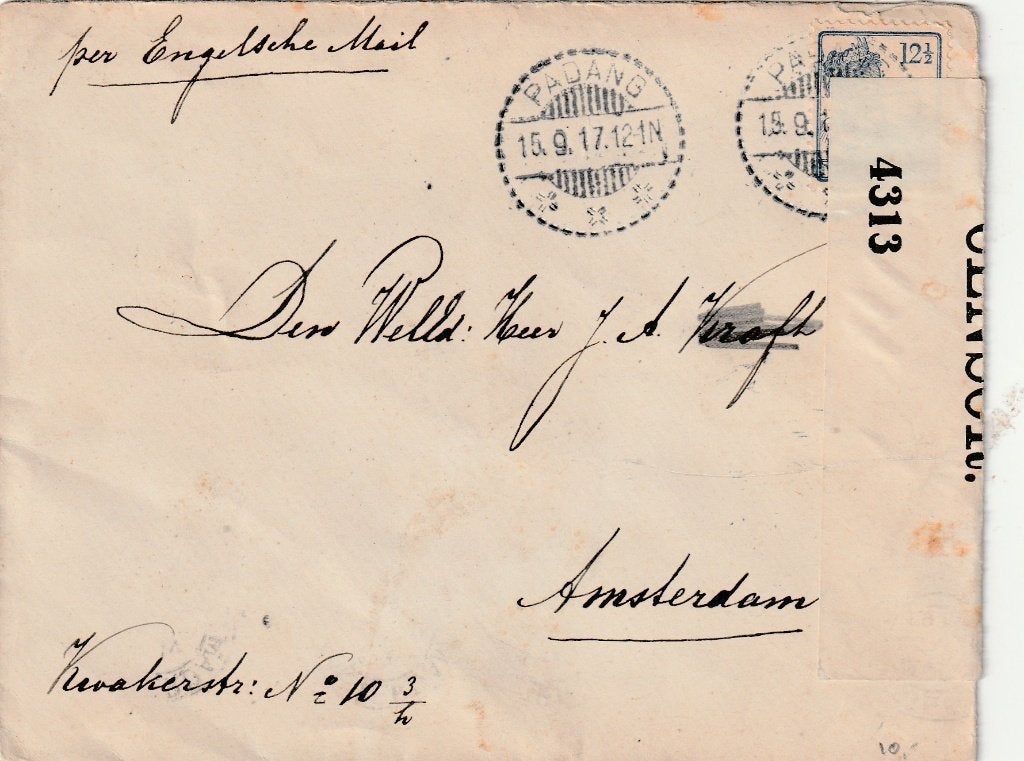 per Engelsche Mail
PADANG
15.9.17.12-1N
PA
15.9.1
12½
4313
CENSOR.
Den Welld: Heer J. A. Kraft
Amsterdam
Kwakerstr: No 10 3/h
10,-